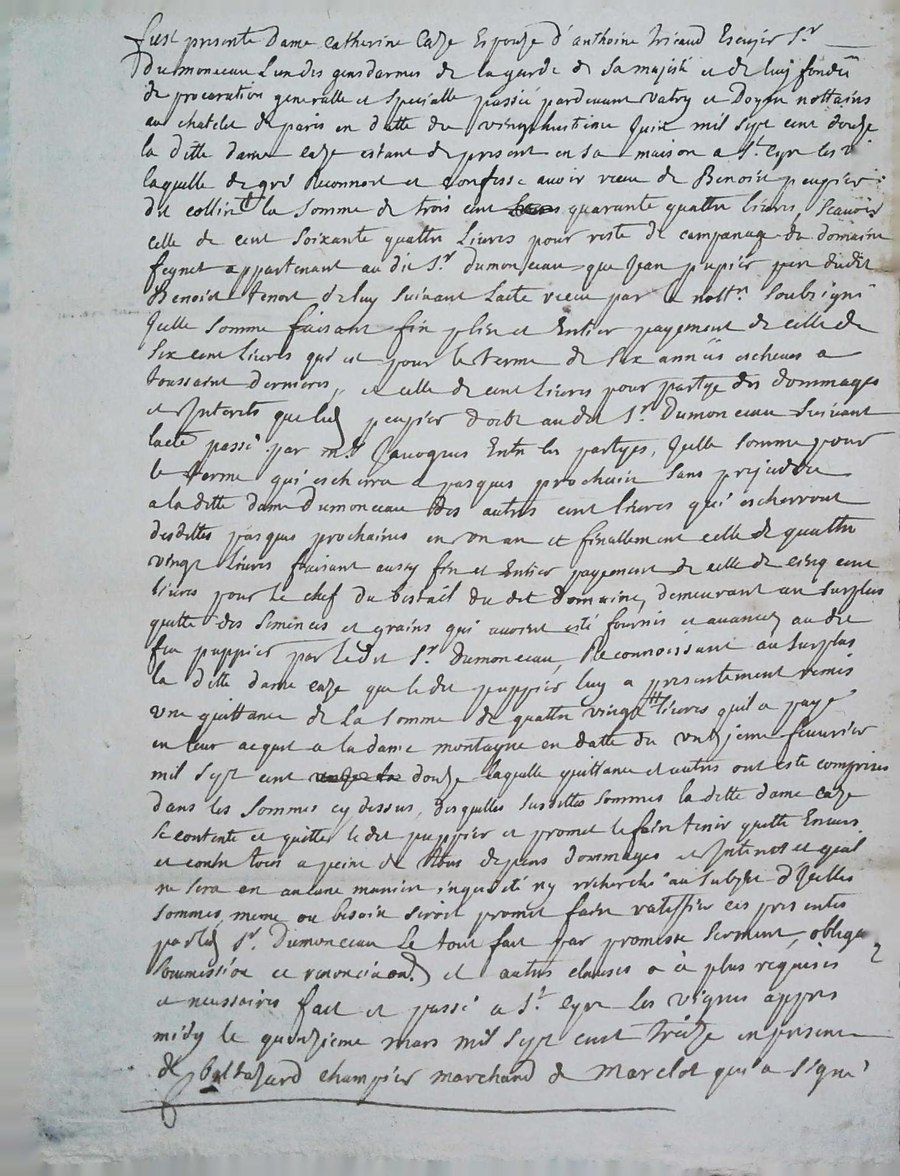 fust presente Dame Catherine Caze Espouze d'anthoine Tricaud Escuyer Sr
Dumonceau Lun des gensdarmes de la garde de Sa majesté et de luy fondée
de procuration generalle et Specialle passée pardevant Vatry et Doyen nottaires
au chatelet de paris en datte du vingthuitieme Juin mil Sept cent douze
la ditte dame caze estant de present en sa maison a St Cyre les V
laquelle de gré Reconnort et Confesse avoir receu de Benoist pupier
dit collin la Somme de trois cent quarante quattre livres, Scavoir
celle de cent Soixante quattre Livres pour reste de de domaine
feynet appartenant au dit Sr Dumonceau que Jean pupier pere dudit
Benoist tenoit de luy Suivant Lacte receu par le nottre Soubsigné
Jcelle Somme faisant fin plein et Entier payement de celle de
Six cent livres qui est pour le terme de Six années escheues a
toussaint dernieres, et celle de cent livres pour partye des dommages
et Interests que led pupier doibt audit Sr Dumonceau Suivant
lacte passé par me Javogues Entre les partyes, Jcelle Somme pour
le terme qui escherra a pasques prochain Sans prejudice
a la ditte dame Dumonceau des autres cent livres qui escherront
desdittes pasques prochaines en un an et finallement celle de quattre
vingt livres faisant aussy fin et Entier payement de celle de cinq cent
livres pour le chef du bestail du dit Domaine, demeurant au Surplus
quitte des Semences et grains qui avoient esté fournis et avancez audit
feu puppier par le dit Sr Dumonceau, Reconnoissant au Surplus
la ditte dame caze que le dit puppier luy a presentement remis
une quittance de la Somme de quattre vingt livres quil a payé
en leur acquit a la dame montagne en datte du unzjeme fevrier
mil Sept cent douze laquelle quittance et autres ont este comprises
dans les Sommes cy dessus, desquelles Susdittes Sommes la ditte dame caze
Se contente et quitte le dit puppier et promet le faire tenir quitte Envers
et contre tous a peine de tous depens dommages et Interest et quil
ne Sera en aucune maniere inquieté ny recherché au Subjet d'Jcelles
Sommes, meme ou besoin Seroit promet faire ratiffier ces presentes
par led Sr Dumonceau Le tout fait par promesse Serment, obliga
Soumission et renonciaon et autres clauses a ce plus requises
et necessaires fait et passé a St Cyre les vignes appres
midy le quinzieme mars mil Sept cent treize en presence
de Baltazard champier marchand de marclot qui a Signé